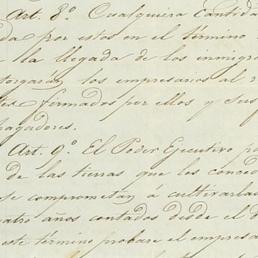 Art. 8.º Cualquiera cantida
da por estos en el termino
la llegada de los inmigra
torgaran los empresarios al
tes firmados por ellos y sus
pagadores.
Art. 9.º El Poder Ejecutivo po
de las tierras que les conced
se comprometan á cultivarla
atro años contados desde el d
este término probare el empresa